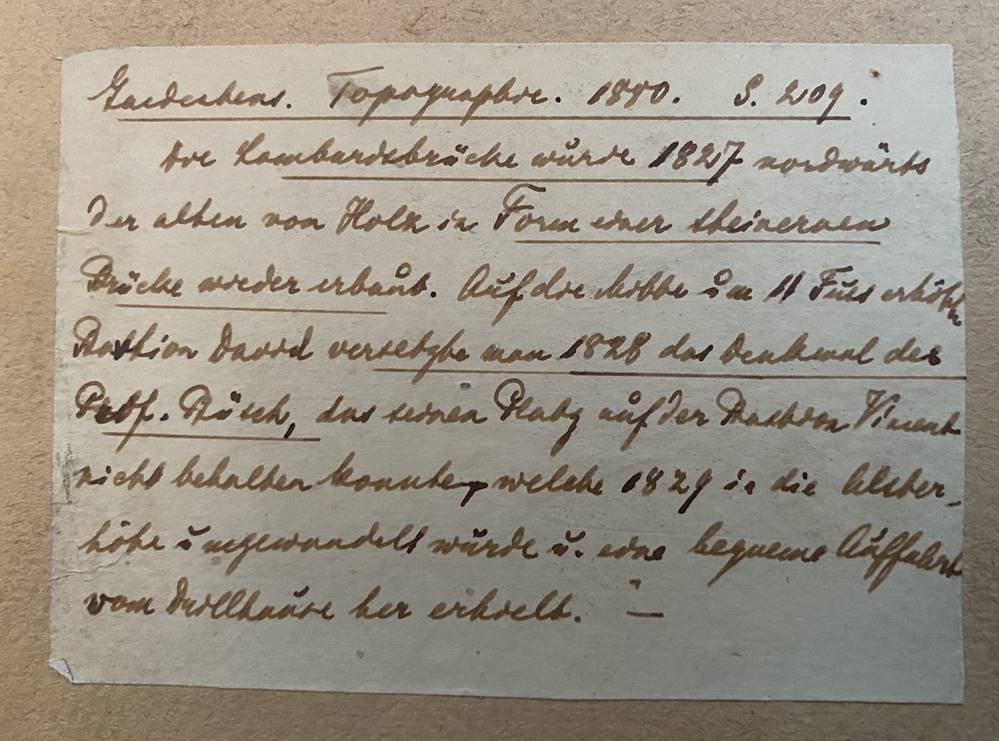 Gaedechens. Topographie. 1880. S. 209.
Die Lombardsbrücke wurde 1827 nordwärts
der alten von Holz in Form einer steinernen
Brücke wieder erbaut. Auf die Mitte um 11 Fuss erhöhte
Bastion David versetzte man 1828 das Denkmal des
Prof. Büsch, das seinen Platz auf der Bastion Vincent
nicht behalten konnte, welche 1829 in die Alster-
höhe umgewandelt wurde u. eine bequeme Auffahrt
vom Drillhause her erhielt. " —